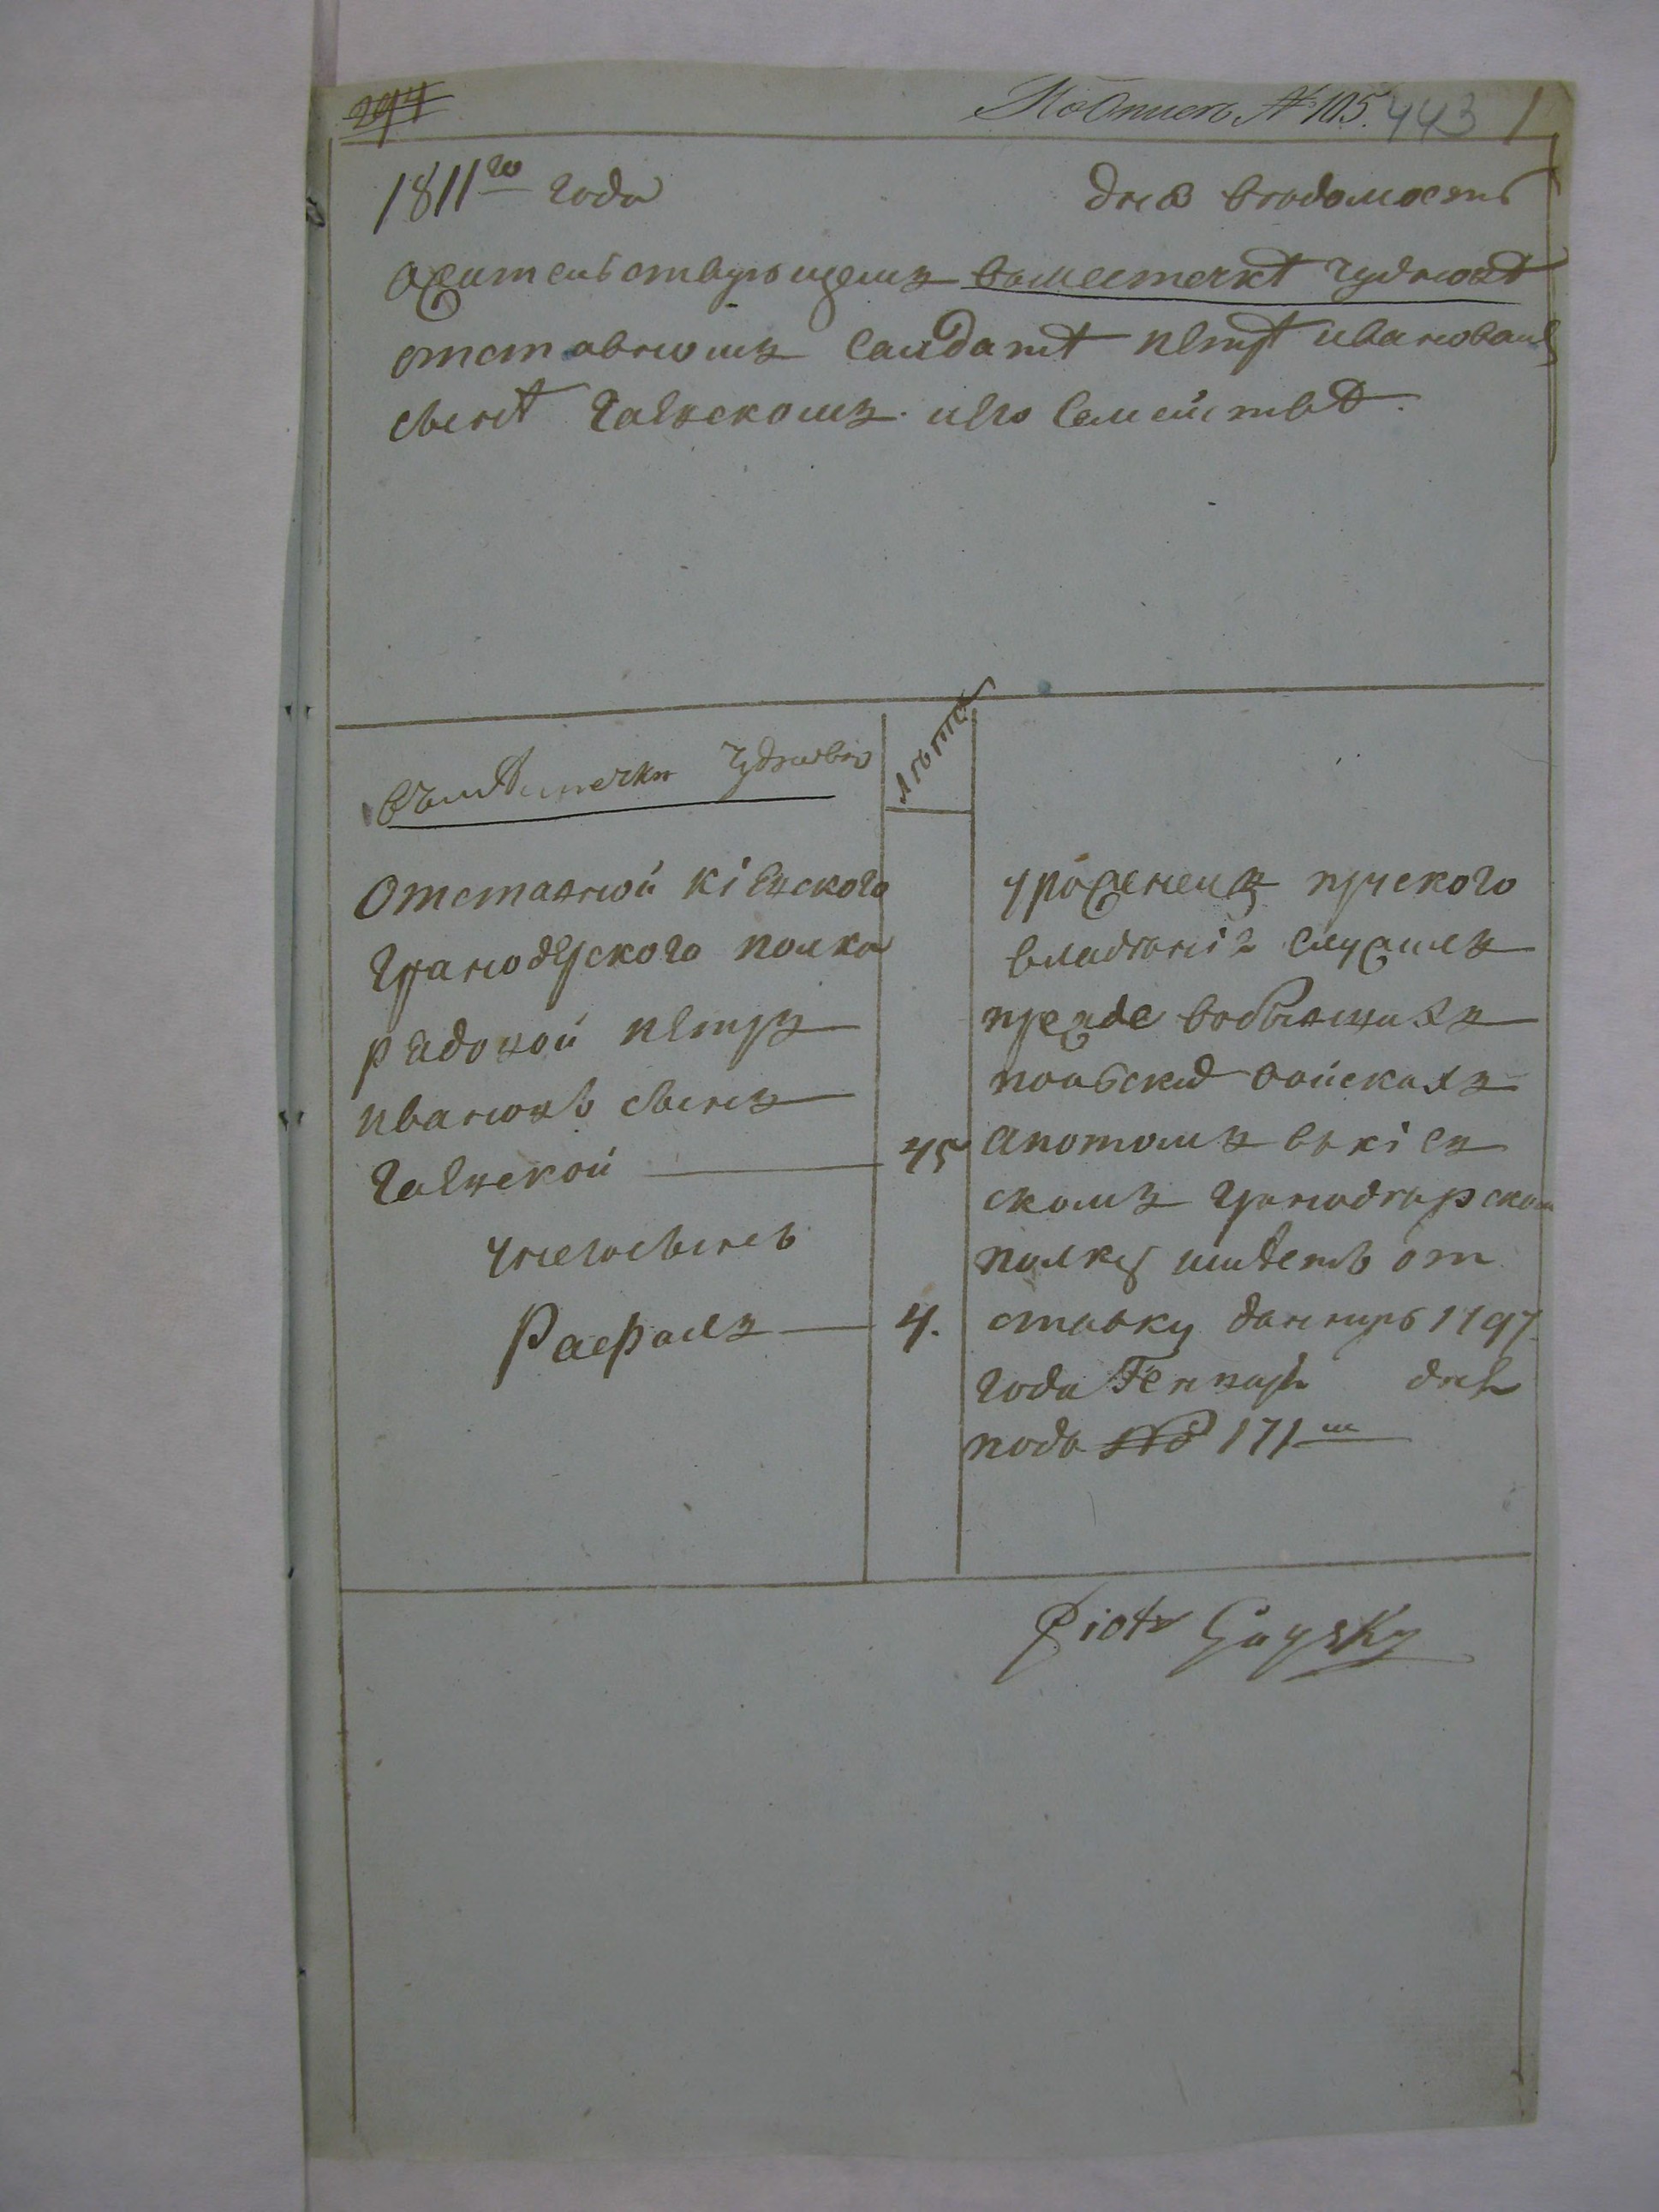 294
Подпись № 105. 443 1
1811го года дня ведомость
ожительствующемъ вместечкѣ чудновѣ
отставномъ салдатѣ петрѣ ивановомъ
сынѣ гаевскомъ иего семействѣ.
вмѣстечки чудново
лѣта
Отставной кіевского
гранодерского полка
рядовой петръ
ивановъ сынъ
гаевской 45
унегосынъ
Рафалъ 4.
уроженецъ пруского
владѣнія служилъ
прежде вобывшихъ
польских войскахъ
апотомъ вкіев
скомъ гранодирском
полку имѣетъ от
ставку даннуюь 1797
года Генваря дня
подъ № 171м
Piotr Gaysky